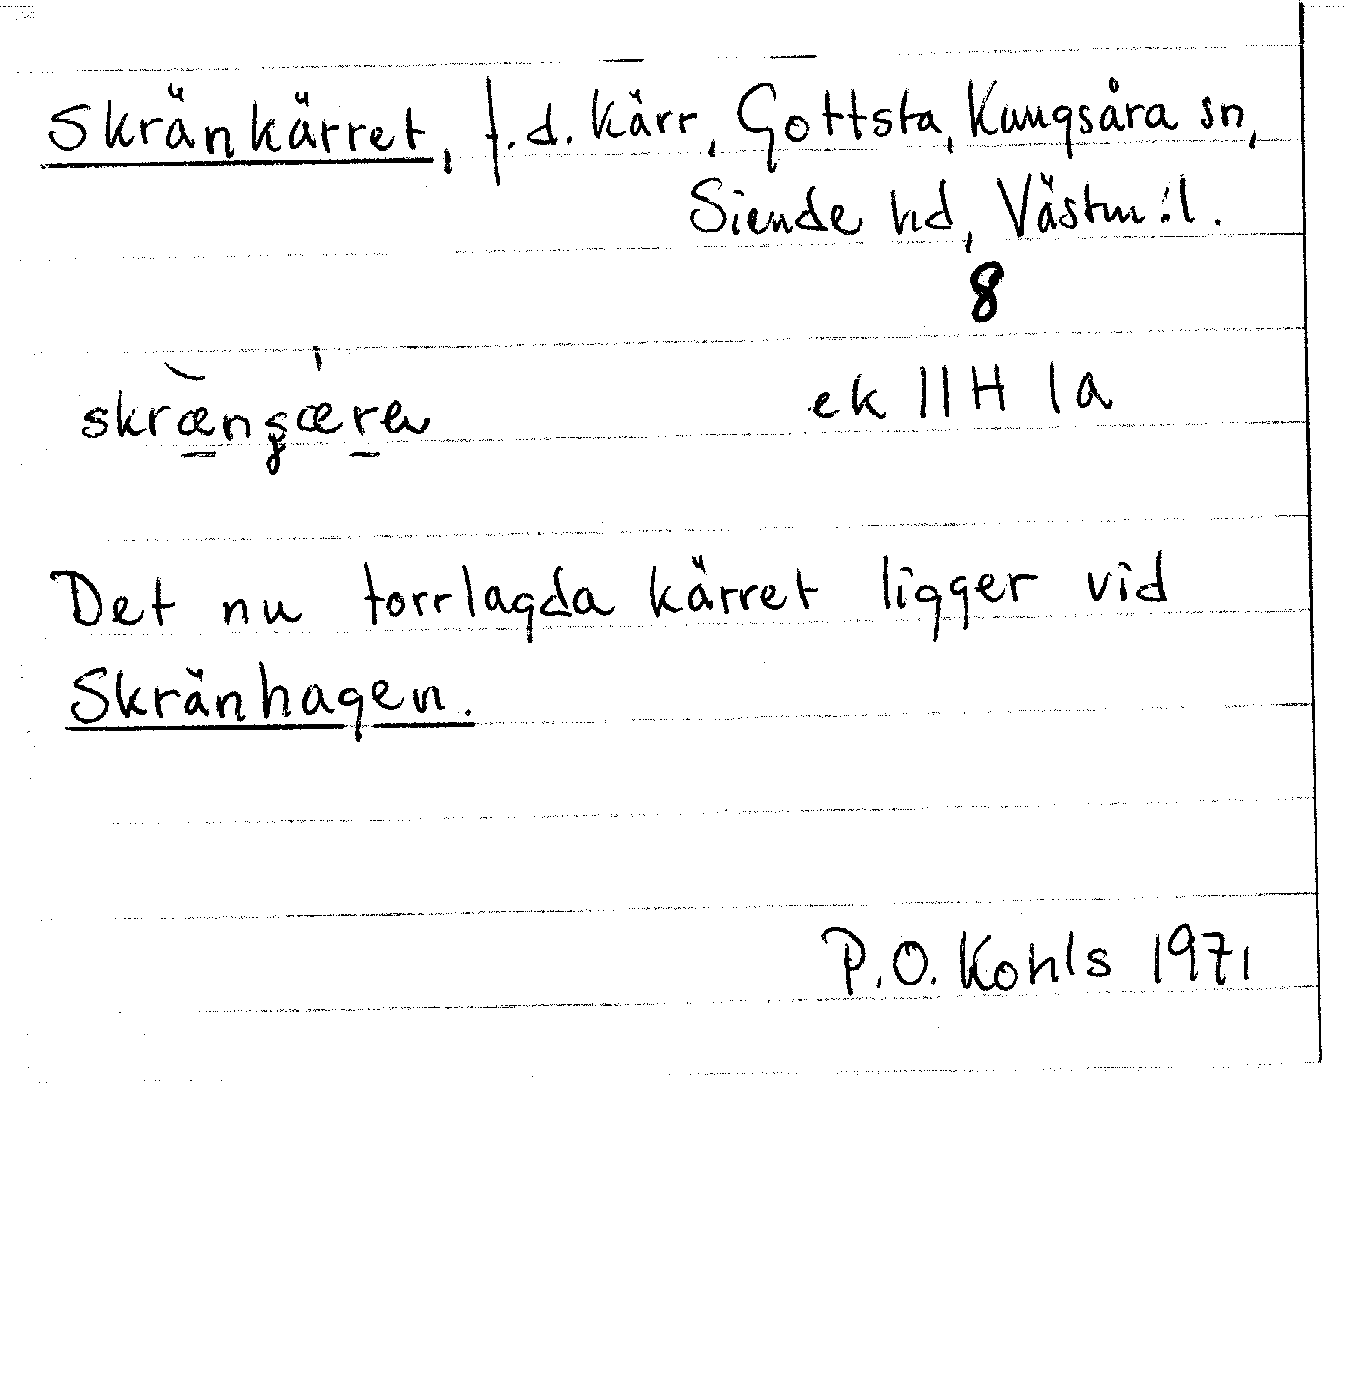 Skränkärret, f.d. kärr, Gottsta, Kungsåra sn,
Siende hd, Västm:l.
8
ek 11H 1a
Det nu torrlagda kärret ligger vid
Skränhagen.
P.O. Kohls 1971